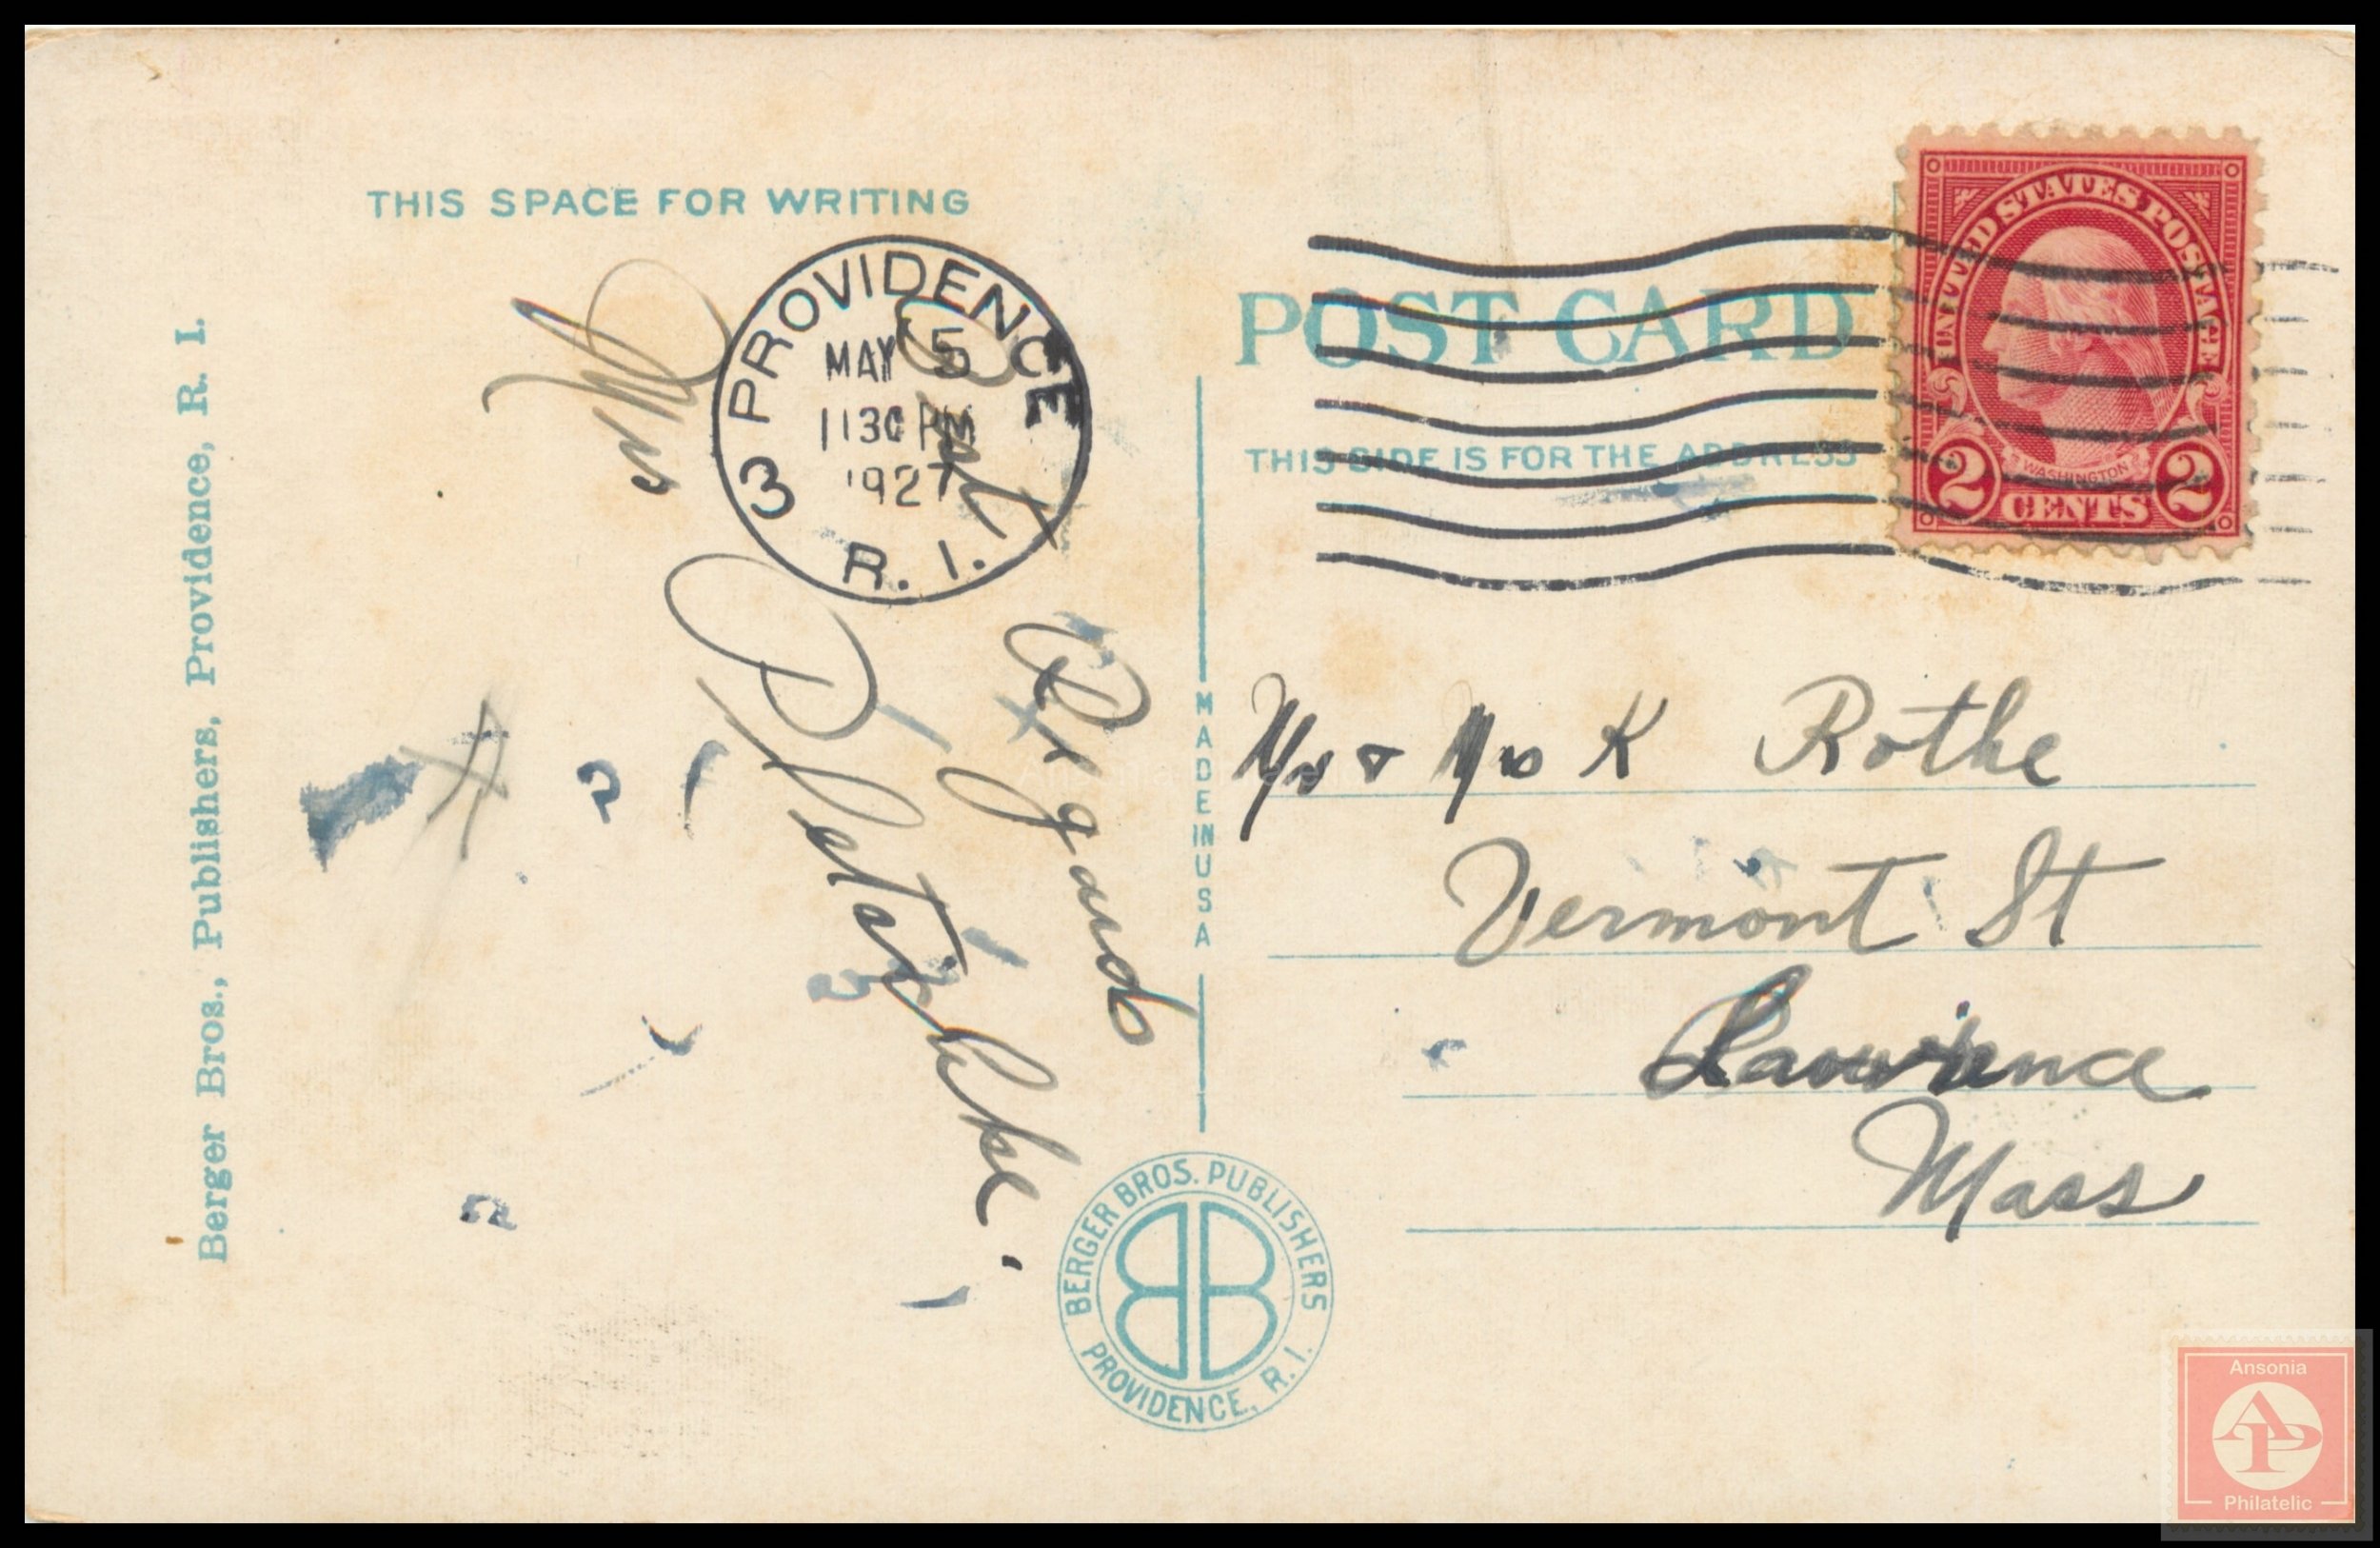 THIS SPACE FOR WRITING
PROVIDENCE
MAY 5
1130 PM
1927
3
R. I.
Best
Regards
Mrs
Berger Bros., Publishers, Providence, R. I.
POST CARD
THIS SIDE IS FOR THE ADDRESS
UNITED STATES POSTAGE
WASHINGTON
2 CENTS 2
MADE IN USA
Mr & Mrs K Rothe
Vermont St
Lawrence
Mass
BERGER BROS. PUBLISHERS
BB
PROVIDENCE, R. I.
Ansonia
AP
Philatelic